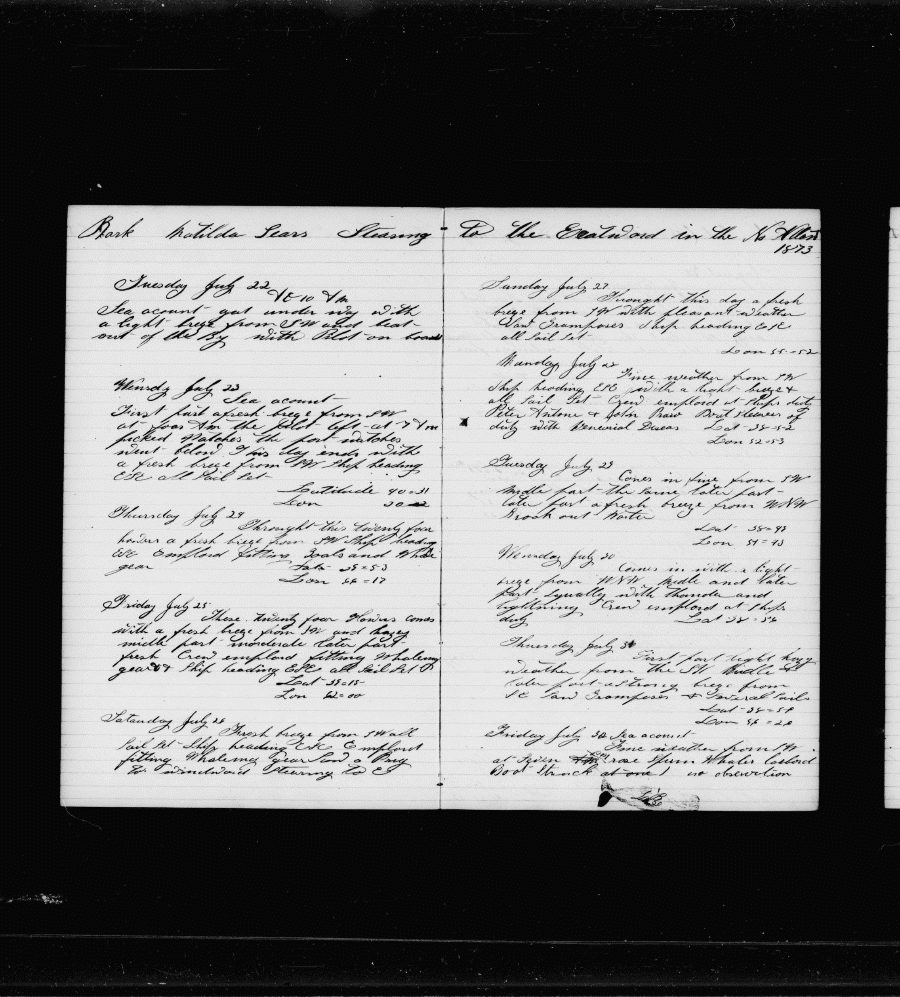 Bark Matilda Sears Stearing
Tuesday July 22
At 10 Am
Sea acount got under way with
a light breze from SW and beat
out of the By with Pilot on board
Wensdy July 23
Sea acount
First part a fresh breze from SW
at foor Am the pilot left at 7 Am
picked Watches the port watches
went below This day ends with
a fresh breze from SW Ship heading
ESE all Sail Set
Latitude 40=31
Lon
Thursday July 24
Throught this twenty foor
howers a fresh breze from SW Ship heading
ESE Employd fitting Boats and Whale
gear
Lon 64=17
Friday July 25
These twenty foor Howrs comes
with a fresh breze from SW and hazey
midle part moderate later part
fresh Crew employd fitting Whaleing
gear Ship heading ESE all Sail Set
Lat 38=18
Lon 62=00
Saturday July 26
Fresh breze from SW all
Sail Set Ship heading ESE Employd
fitting Whaleing gear Saw a Brig
to windward stearing to E
To the Eastward in the No Atlant
1873
Sunday July 27
Throught this day a fresh
breze from SW with pleasant weather
Saw Grampuses Ship heading ESE
all Sail Set
Lon 55=52
Monday July
Fine weather from SW
Ship heading ESE with a light breze
all Sail Set Crew employd at Ships duty
Peter Antone & John Boat Stearers of
duty with Lat 38=52
Lon 52=53
Tuesday July 29
Comes in fine from SW
Midle part the Same later part
later part a fresh breze from WNW
Broak out Water
Lat 38=43
Lon 51=43
Wensday July 30
Comes in with a light
breze from WNW Midle and later
part Squally with thunder and
lightning Crew employd at Ships
duty Lat 38=54
Thursday July 31
First part light hazy
weather from the SW Midle
later part a strong breze from
SE Saw Grampuses & Several Sails
Lat 38=54
Lon 54=20
Friday July Sea acount
Fine weather from SW
at Seven rose Sperm Whales Lowerd
Boat Struck at one no observation